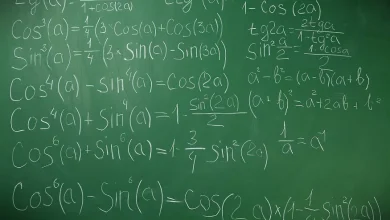 1+cos(2a)
1-Cos(2a)
Cos³(a)=1/4(3·Cos(a)+Cos(3a)
Sin³(a)=1/4(3·Sin(a)-Sin(3a)
tg2a=2tga/1-tg²a
Sin²a/2=1-cosa/2
Cos⁴(a)-Sin⁴(a)=Cos(2a)
a²-b²=(a-b)(a+b)
Cos⁴(a)+Sin⁴(a)=1-Sin²(2a)/2
(a+b)²=a²+2ab+b²
Cos⁶(a)+Sin⁶(a)=1-3/4 Sin²(2a)
1/a=a⁻¹
Cos⁶(a)-Sin⁶(a)=Cos(2a)×(1-1/4Sin²(2a))